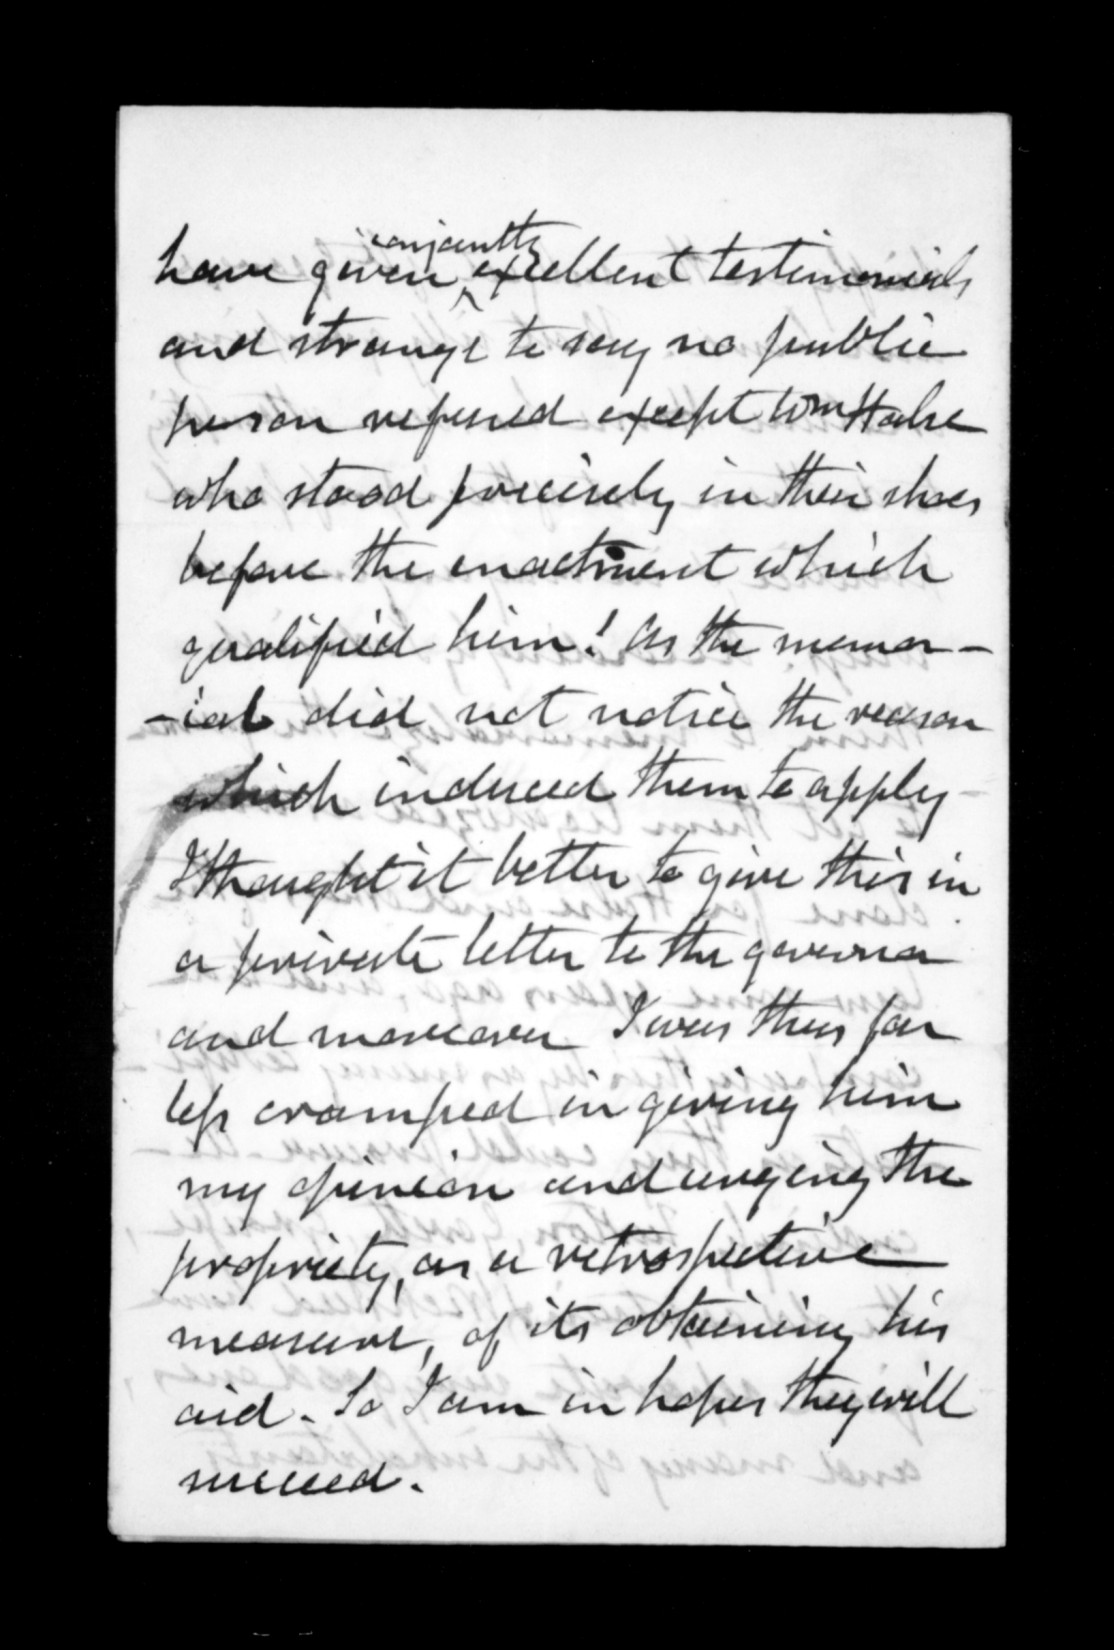 have given conjointly excellent testimonials
and strange to say no public
person refused except Wm Halse
who stood precisely in their shoes
before the enactment which
qualified him! As the memor-
-ial did not notice the reason
which induced them to apply -
I thought it better to give this in
a private letter to the governor
and moreover I was thus far
less cramped in giving him
my opinion and urging the
propriety, as a retrospective
measure, of its obtaining his
aid - So I am in hopes they will
succeed.